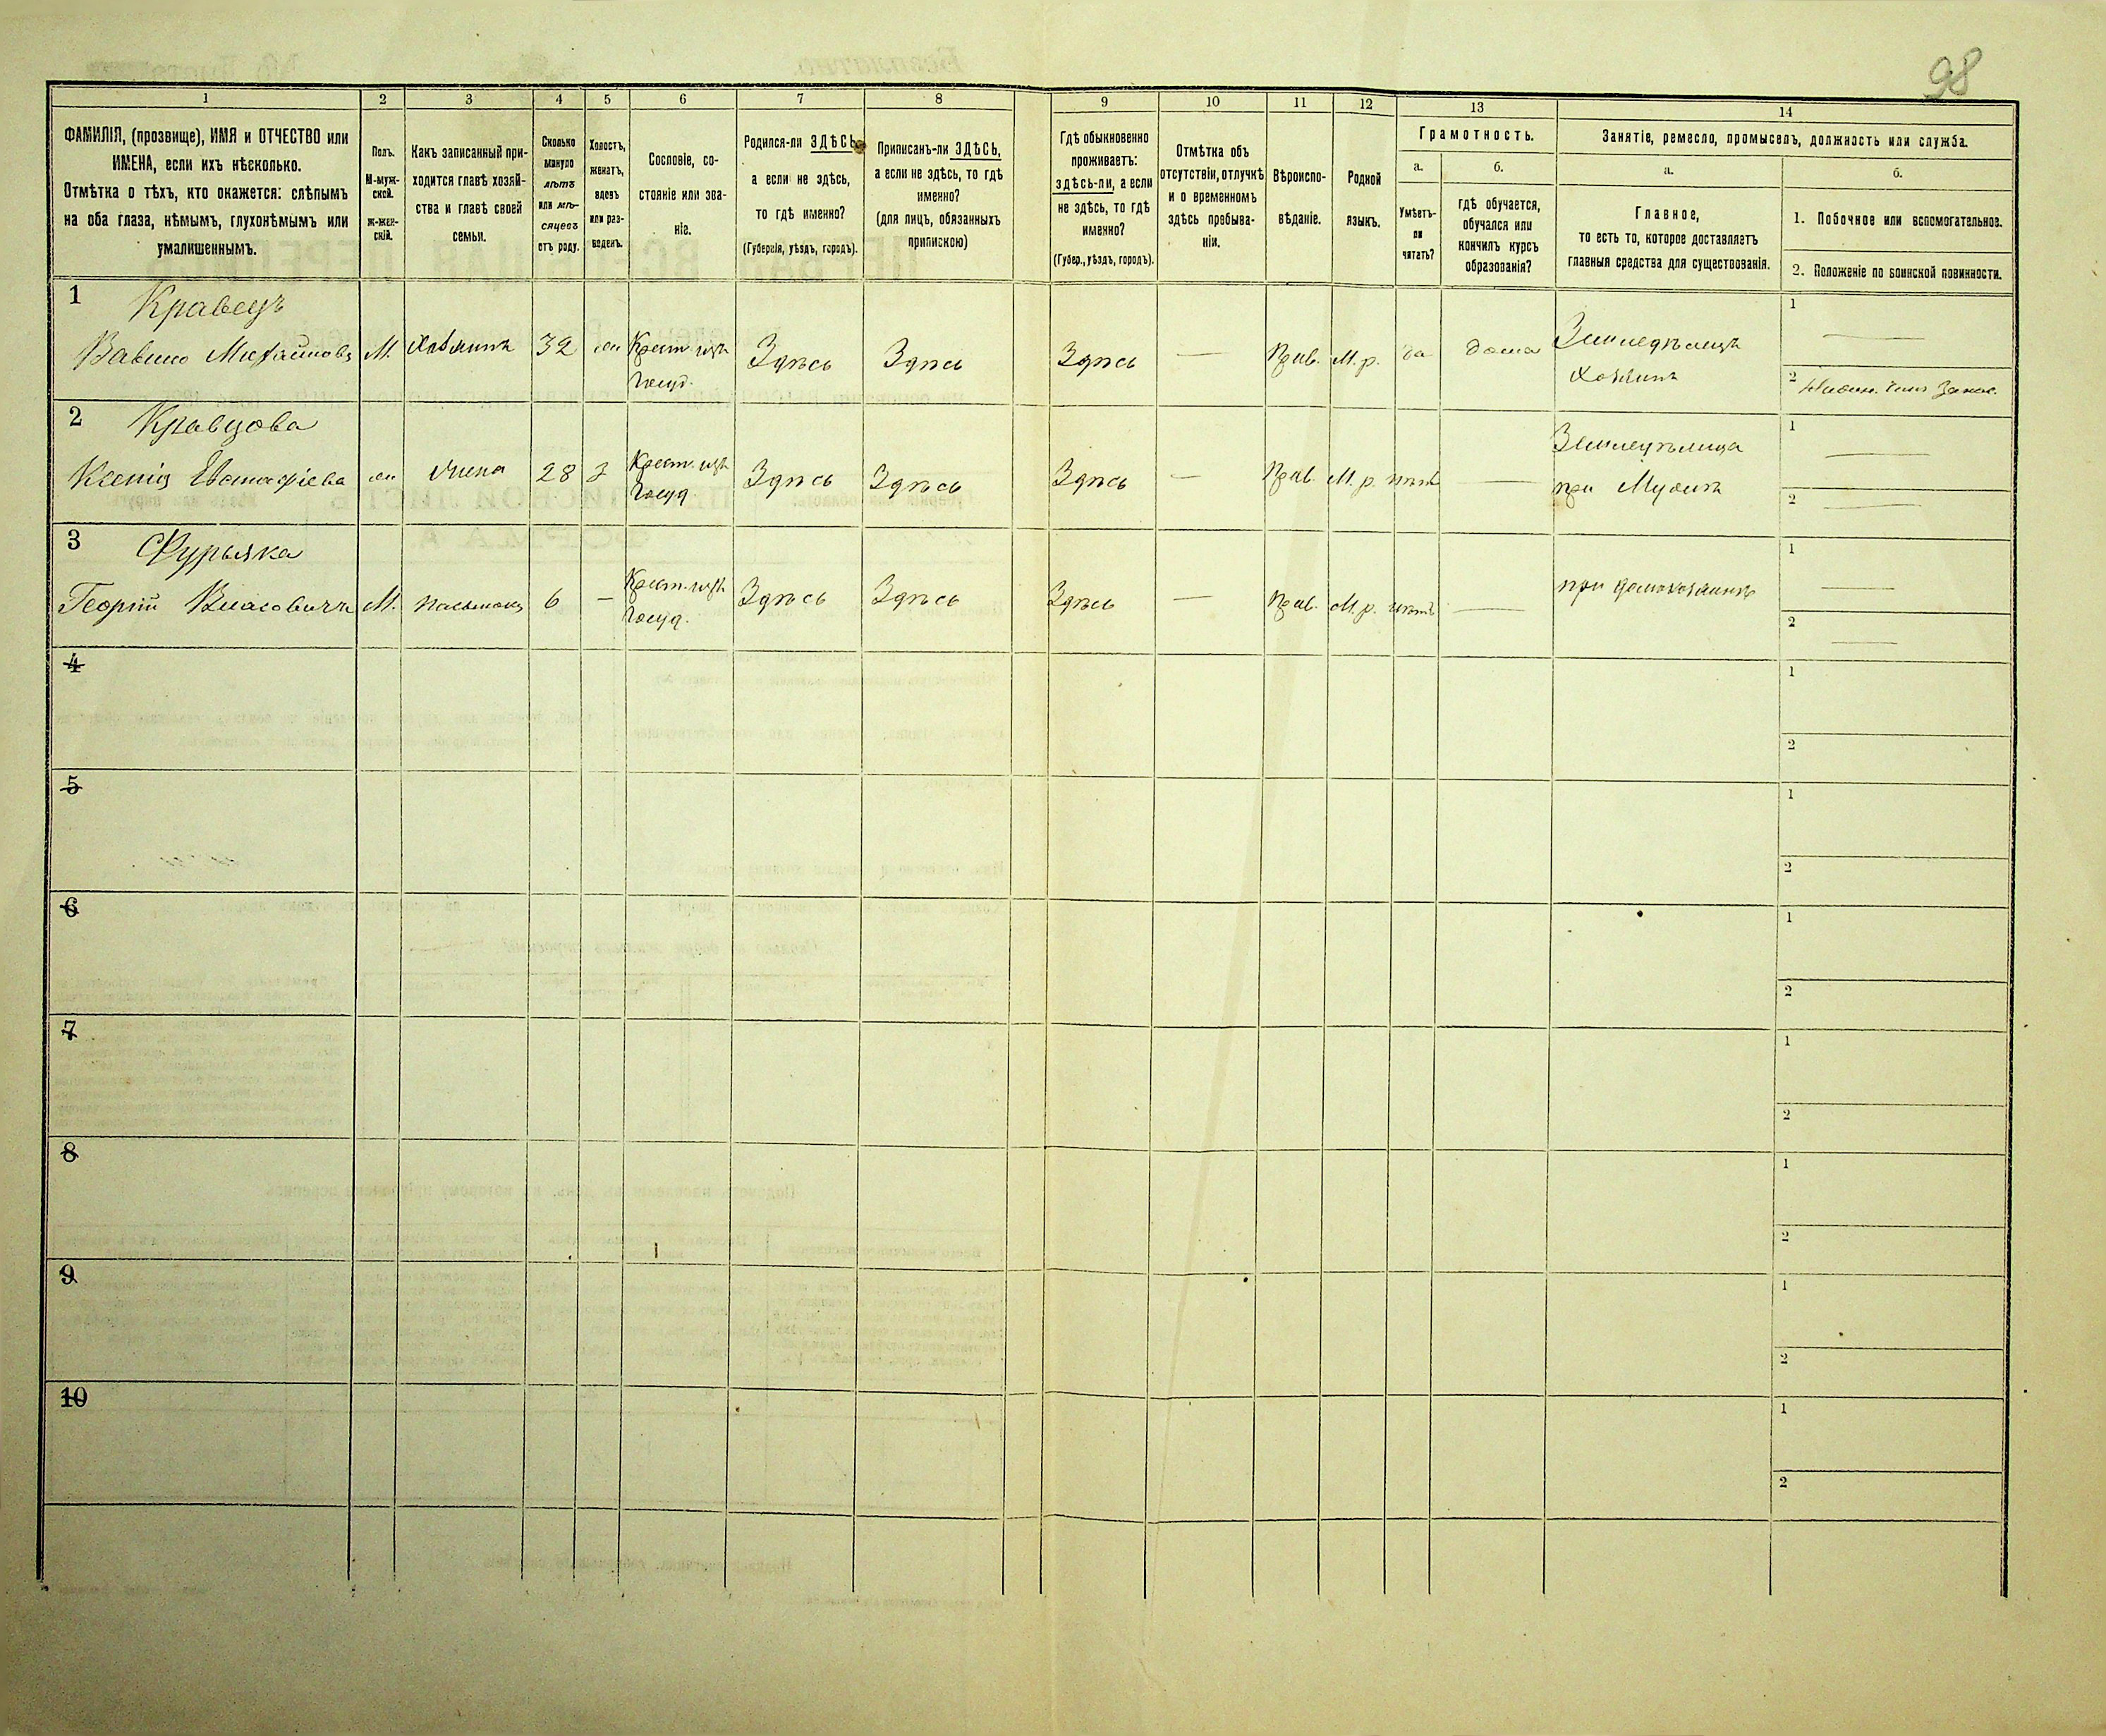 98
1 2 3 4 5 6 7 8 9 10 11 12 13 14
ФАМИЛІЯ, (прозвище), ИМЯ и ОТЧЕСТВО или
ИМЕНА, если ихъ нѣсколько.
Отмѣтка о тѣхъ, кто окажется: слѣпымъ
на оба глаза, нѣмымъ, глухонѣмымъ или
умалишеннымъ.
Полъ.
М-муж-
ской.
Ж-жен-
скій.
Какъ записанный при-
ходится главѣ хозяй-
ства и главѣ своей
семьи.
Сколько
минуло
лѣтъ
или мѣ-
сяцевъ
отъ роду.
Холостъ,
женатъ,
вдовъ
или раз-
веденъ.
Сословіе, со-
стояніе или зва-
ніе.
Родился-ли ЗДѢСЬ,
а если не здѣсь,
то гдѣ именно?
(Губернія, уѣздъ, городъ).
Приписанъ-ли ЗДѢСЬ,
а если не здѣсь, то гдѣ
именно?
(для лицъ, обязанныхъ
припискою)
Гдѣ обыкновенно
проживаетъ:
здѣсь-ли, а если
не здѣсь, то гдѣ
именно?
(Губер., уѣздъ, городъ).
Отмѣтка объ
отсутствіи, отлучкѣ
и о временномъ
здѣсь пребыва-
ніи.
Вѣроиспо-
вѣданіе.
Родной
языкъ.
Грамотность.
а.
Умѣетъ-
ли
читать?
б.
гдѣ обучается,
обучался или
кончилъ курсъ
образованія?
Занятіе, ремесло, промыселъ, должность или служба.
а.
Главное,
то есть то, которое доставляетъ
главныя средства для существованія.
б.
1. Побочное или вспомогательное.
2. Положеніе по воинской повинности.
1 Кравецъ
Михайловъ М. Хозяинъ 32 Крест. изъ Госуд. Здѣсь Здѣсь Здѣсь — Прав. М. р. да дома Земледѣлецъ Хозяинъ
1 —
2
2 Кравцова
Ксенія Евстафіева жена 28 з Крест. изъ Госуд Здѣсь Здѣсь Здѣсь — Прав. М. р. нѣтъ — Земледѣлица при Мужѣ
1 —
2 —
3 Фурьяка
Георгій Власовичъ М. пасынокъ 6 — Крест. изъ Госуд. Здѣсь Здѣсь Здѣсь — Прав. М. р. нѣтъ — при
1 —
2 —
4
1
2
5
1
2
6
1
2
7
1
2
8
1
2
9
1
2
10
1
2